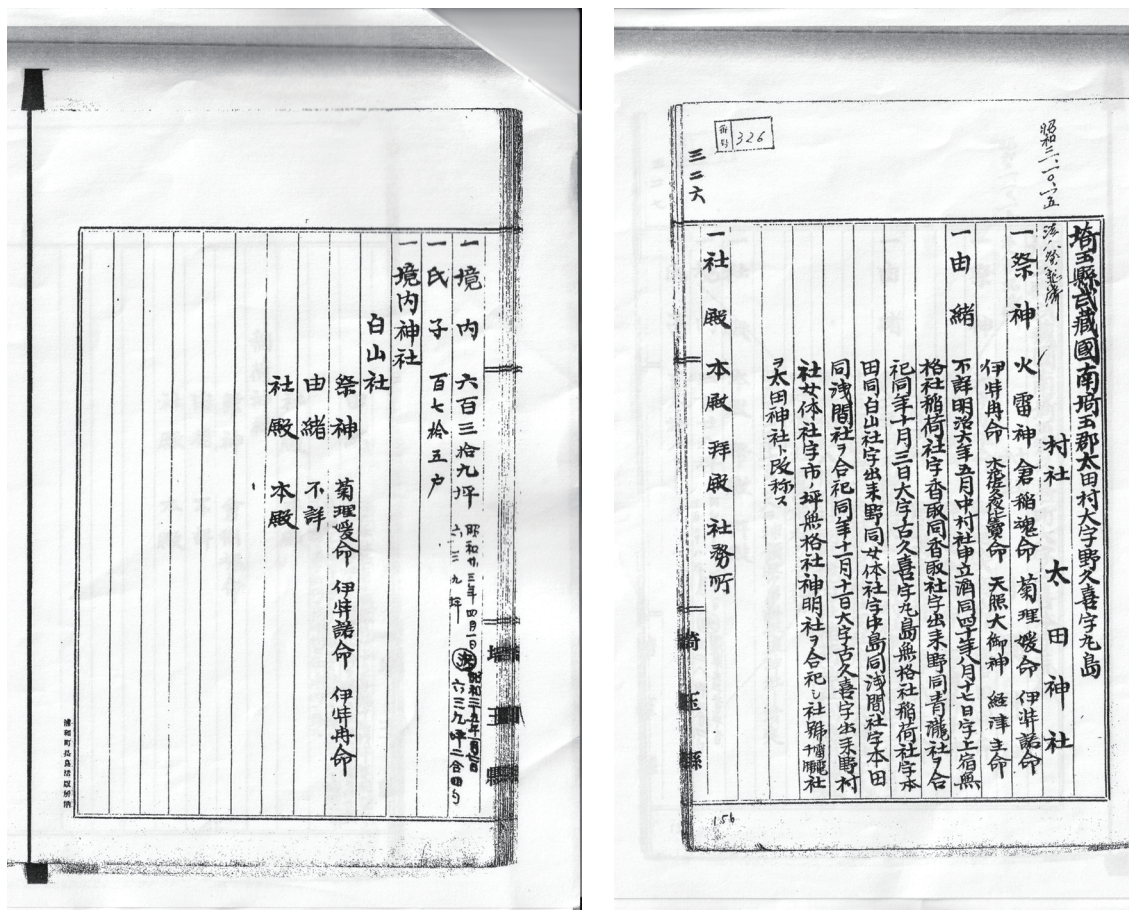 昭和二一、一〇、一五
番号 326
三二六
埼玉縣武藏國南埼玉郡太田村大字野久喜字九島
村社 太田神社
一祭神 火雷神 倉稲魂命 菊理媛命 伊弉諾命
伊弉冉命 木花咲夜姫命 天照大御神 経津主命
一由緒 不詳明治六年五月中村社申立済同四十年八月十七日字上宿無
格社稲荷社字香取同香取社字出来野同青瀧社ヲ合
祀同年十月三日大字古久喜字九島無格社稲荷社字本
田同白山社字出来野同女体社字中島同浅間社字本田
同浅間社ヲ合祀同年十一月十一日大字古久喜字出来野村
社女体社字市ノ坪無格社神明社ヲ合祀シ社號
社
ヲ太田神社ト改称ス
一社殿 本殿 拝殿 社務所
埼玉縣
156
一境内 六百三拾九坪 昭和廿三年四月一日
六三九坪
六三九坪二合四勺
一氏子 百七拾五戸
一境内神社
白山社
祭神 菊理媛命 伊弉諾命 伊弉冉命
由緒 不詳
社殿 本殿
埼玉縣